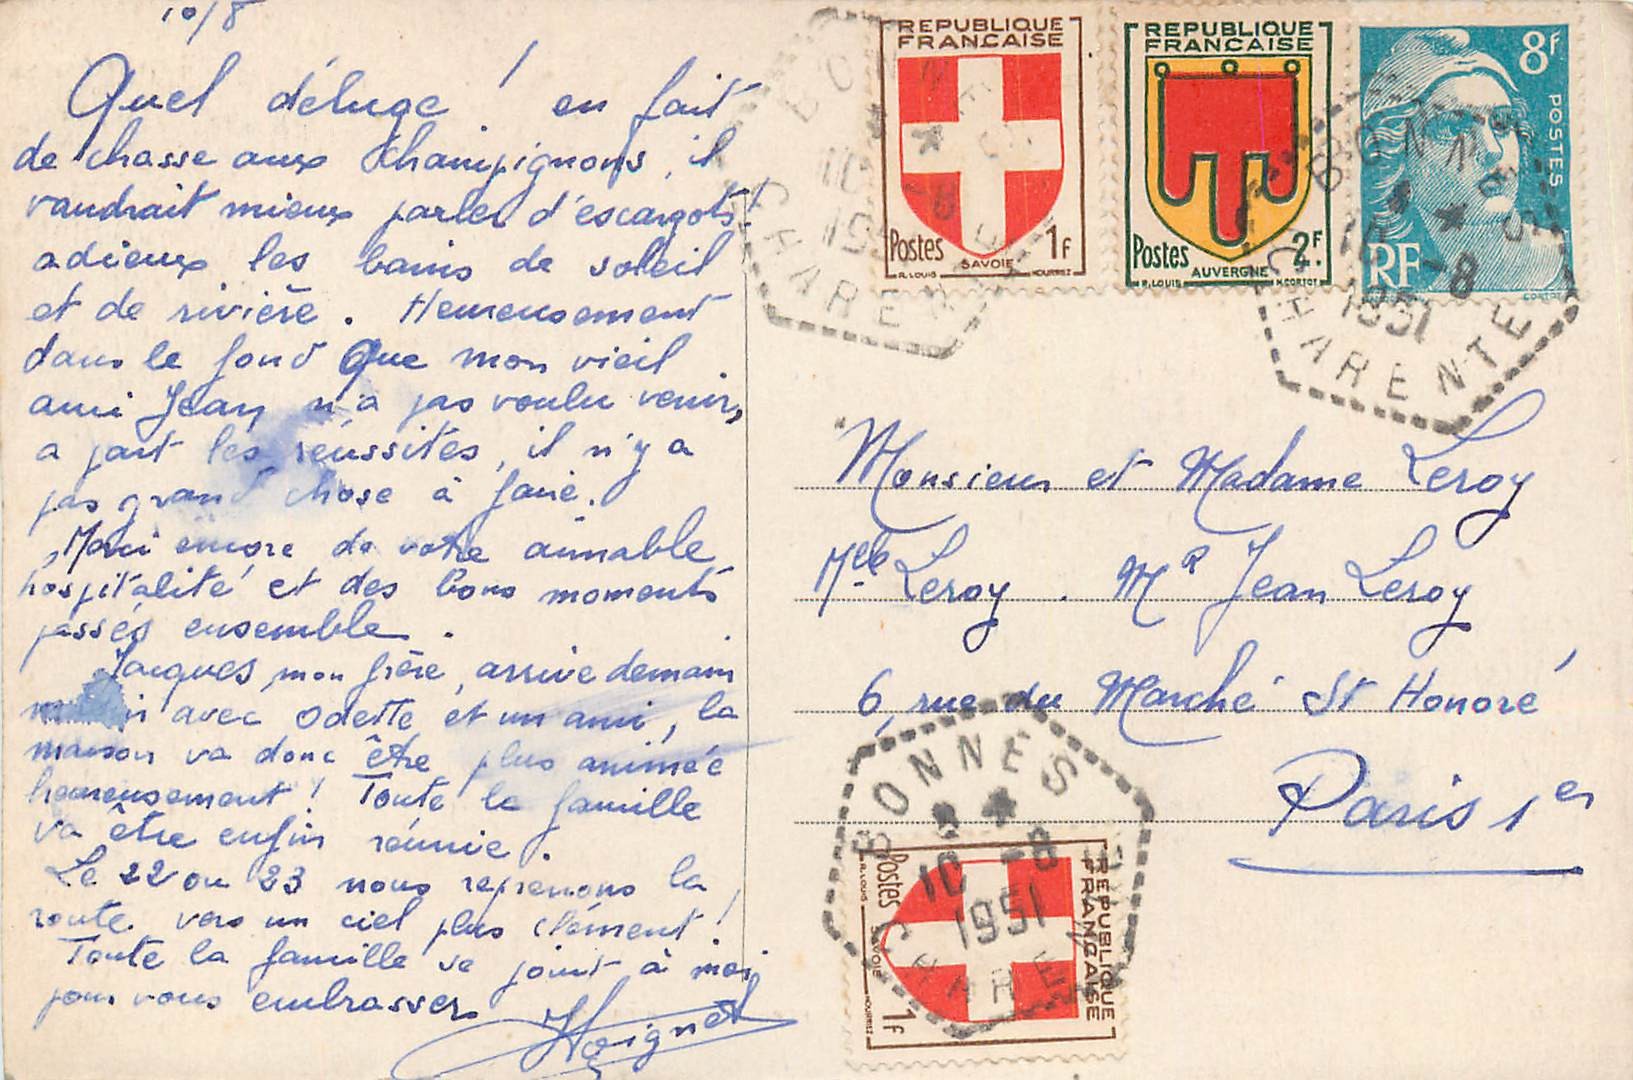 10/8
Quel déluge ! en fait
de chasse aux champignons, il
vaudrait mieux parler d'escargots!
adieux les bains de soleil
et de rivière. Heureusement
dans le fond que mon vieil
ami Jean n'a pas voulu venir,
a part les réussites, il n'y a
pas grand chose à faire.
Merci encore de votre aimable
hospitalité et des bons moments
passés ensemble.
Jacques, mon frère, arrive demain
matin avec Odette et un ami, la
maison va donc être plus animée
heureusement ! Toute la famille
va être enfin réunie.
Le 22 ou 23 nous reprenons la
route vers un ciel plus clément !
Toute la famille se joint à moi
pour vous embrasser
REPUBLIQUE
FRANÇAISE
Postes 1F
SAVOIE
R. LOUIS
REPUBLIQUE
FRANÇAISE
Postes 2F
AUVERGNE
R. LOUIS M. CORTOT
8F
POSTES
RF
CORTOT
BONNES
10 -8
1951
CHARENTE
BONNES
10 -8
1951
CHARENTE
Monsieur et Madame Leroy
Mlle Leroy . Mr Jean Leroy
6, rue du Marché St Honoré
Paris 1er
BONNES
10 -8
1951
CHARENTE
REPUBLIQUE
FRANÇAISE
Postes 1F
SAVOIE
R. LOUIS